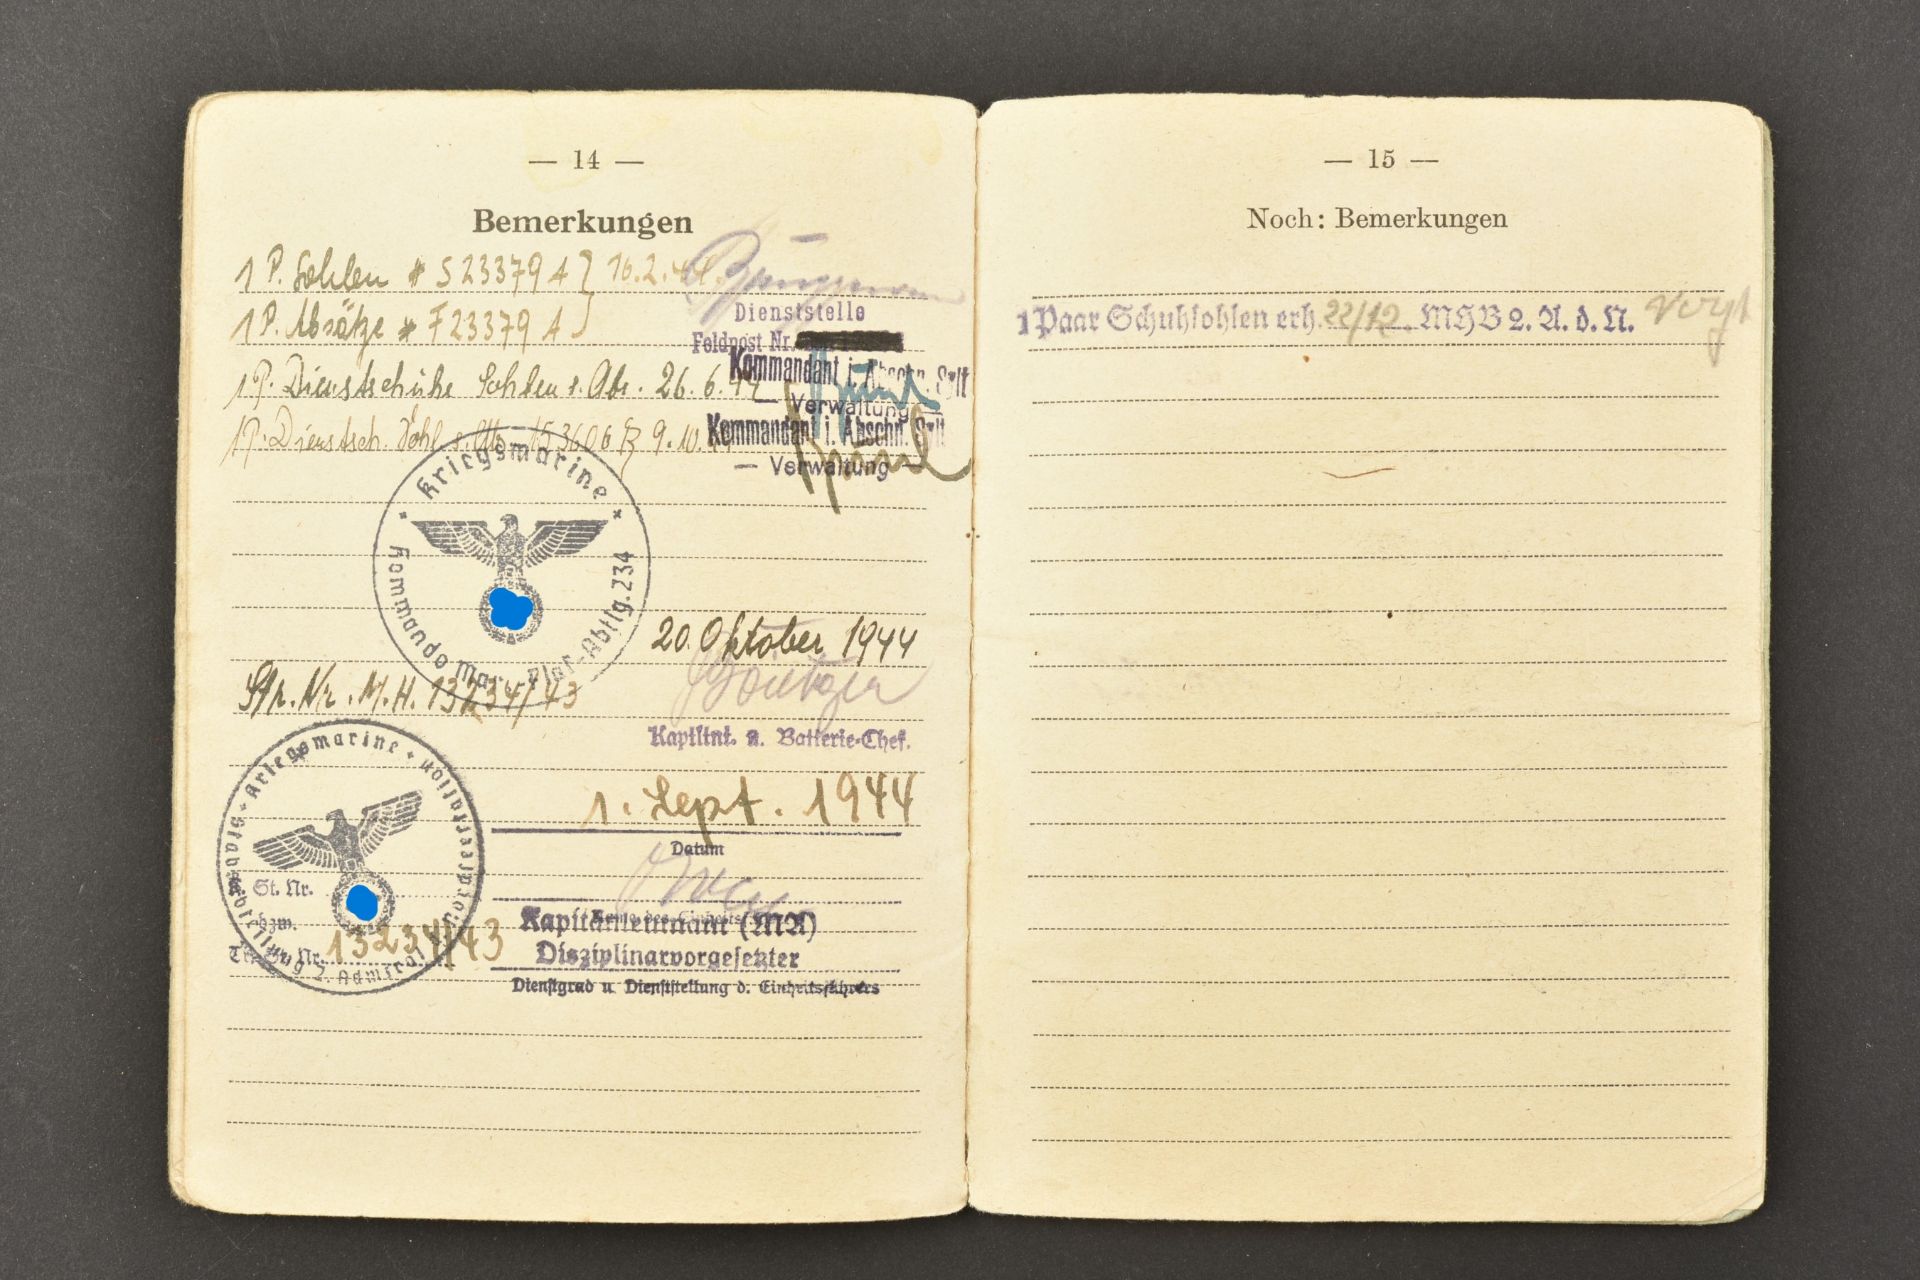 — 14 —
Bemerkungen
1 P. Sohlen * S 23379 A } 16.2.44.
1 P. Absätze * F 23379 A
Dienststelle
Feldpost Nr.
1 P. Dienstschuhe Sohlen u. Abs. 26.6.44
Kommandant i. Abschn. Sylt
— Verwaltung —
1 P. Dienstsch. Sohl. u. Abs. 153606 R 9.10.
Kommandant i. Abschn. Sylt
— Verwaltung —
Kriegsmarine
Kommando Mar. Flak-Abtlg. 234
20. Oktober 1944
Str. Nr. M.H. 13234/43
Kaptltnt. u. Batterie-Chef.
Kriegsmarine
Stabsabteilung
1. Sept. 1944
Datum
St. Nr.
bzw.
13234/43
Kapitänleutnant (MA)
Disziplinarvorgesetzter
Dienstgrad u Dienststellung d. Einheitsführers
— 15 —
Noch: Bemerkungen
1 Paar Schuhsohlen erh. 22/12. MHB 2. A. d. N. Vogt